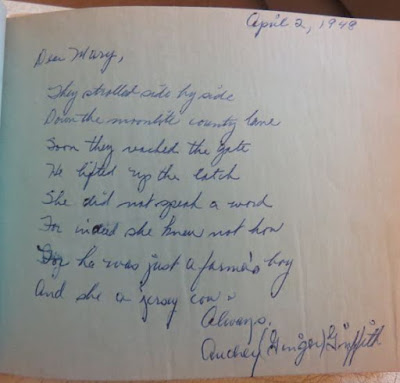 April 2, 1948
Dear Mary,
They strolled side by side
Down the moonlite county lane
Soon they reached the gate
He lifted up the latch
She did not speak a word
For indeed she knew not how
For he was just a farmer's boy
And she a jersey cow.
Always,
Audrey (Ginger) Griffith